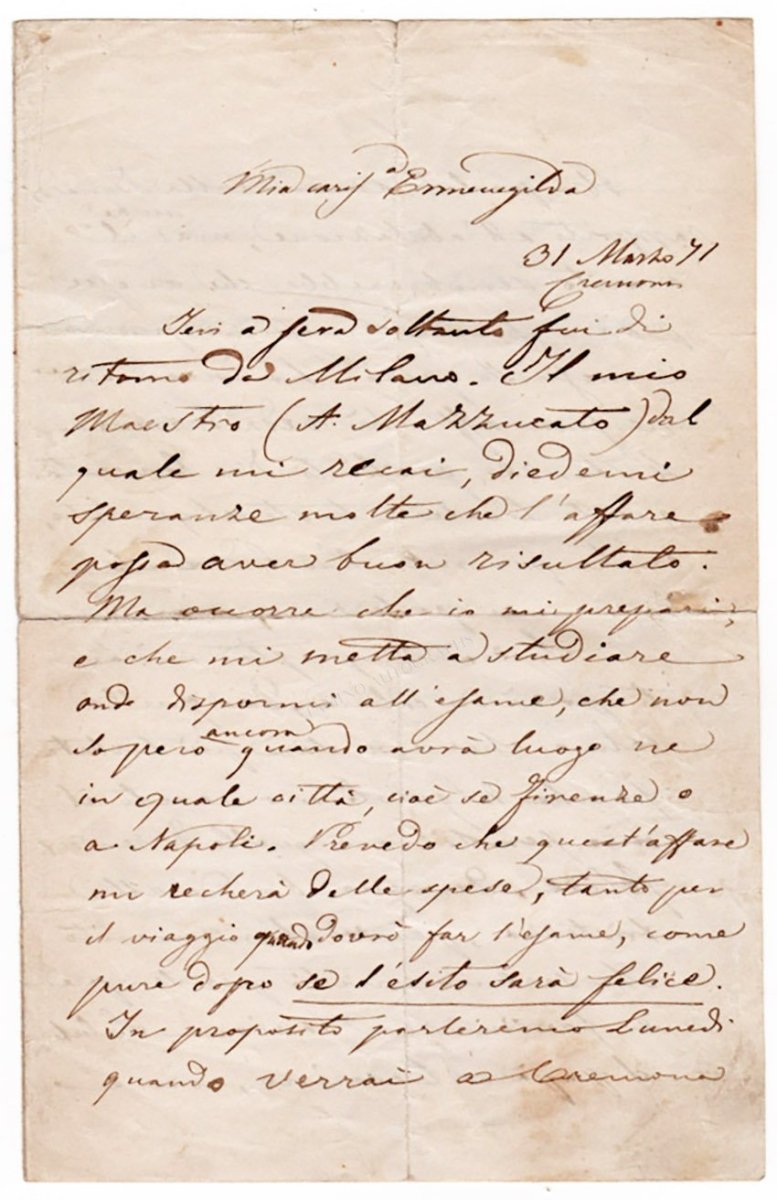 Mia cariſ.ª Ermenegilda
31 Marzo 71
Cremona
Ieri a sera soltanto fui di
ritorno da Milano. Il mio
Maestro (A. Mazzucato) dal
quale mi recai, diedemi
speranze molte che l'affare
possa aver buon risultato.
Ma occorre che io mi prepari,
e che mi metta a studiare
onde dispormi all'esame, che non
so però ancora quando avrà luogo ne
in quale città, cioè se Firenze o
a Napoli. Prevedo che quest'affare
mi recherà delle spese, tanto per
il viaggio quando dovrò far l'esame, come
pure dopo se l'ésito sarà felice.
In proposito parleremo Lunedi
quando verrai a Cremona